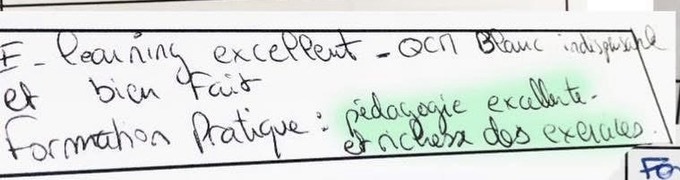 E-learning excellent - QCM Blanc indispensable
et bien fait
Formation Pratique : pédagogie excellente.
et richesse des exercices.
Fo